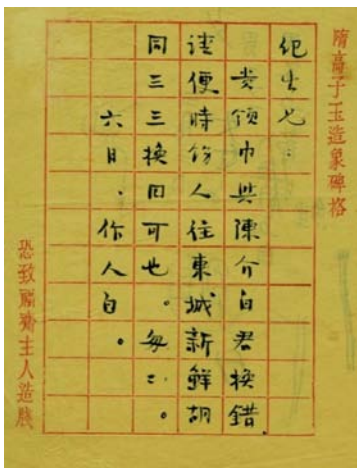 隋高子玉造象碑格
紀生兄：
貴領巾與陳介白君換錯
請便時飭人往東城新鮮胡
同三三換回可也。匆々。
六日、作人白。
齋主人造牋